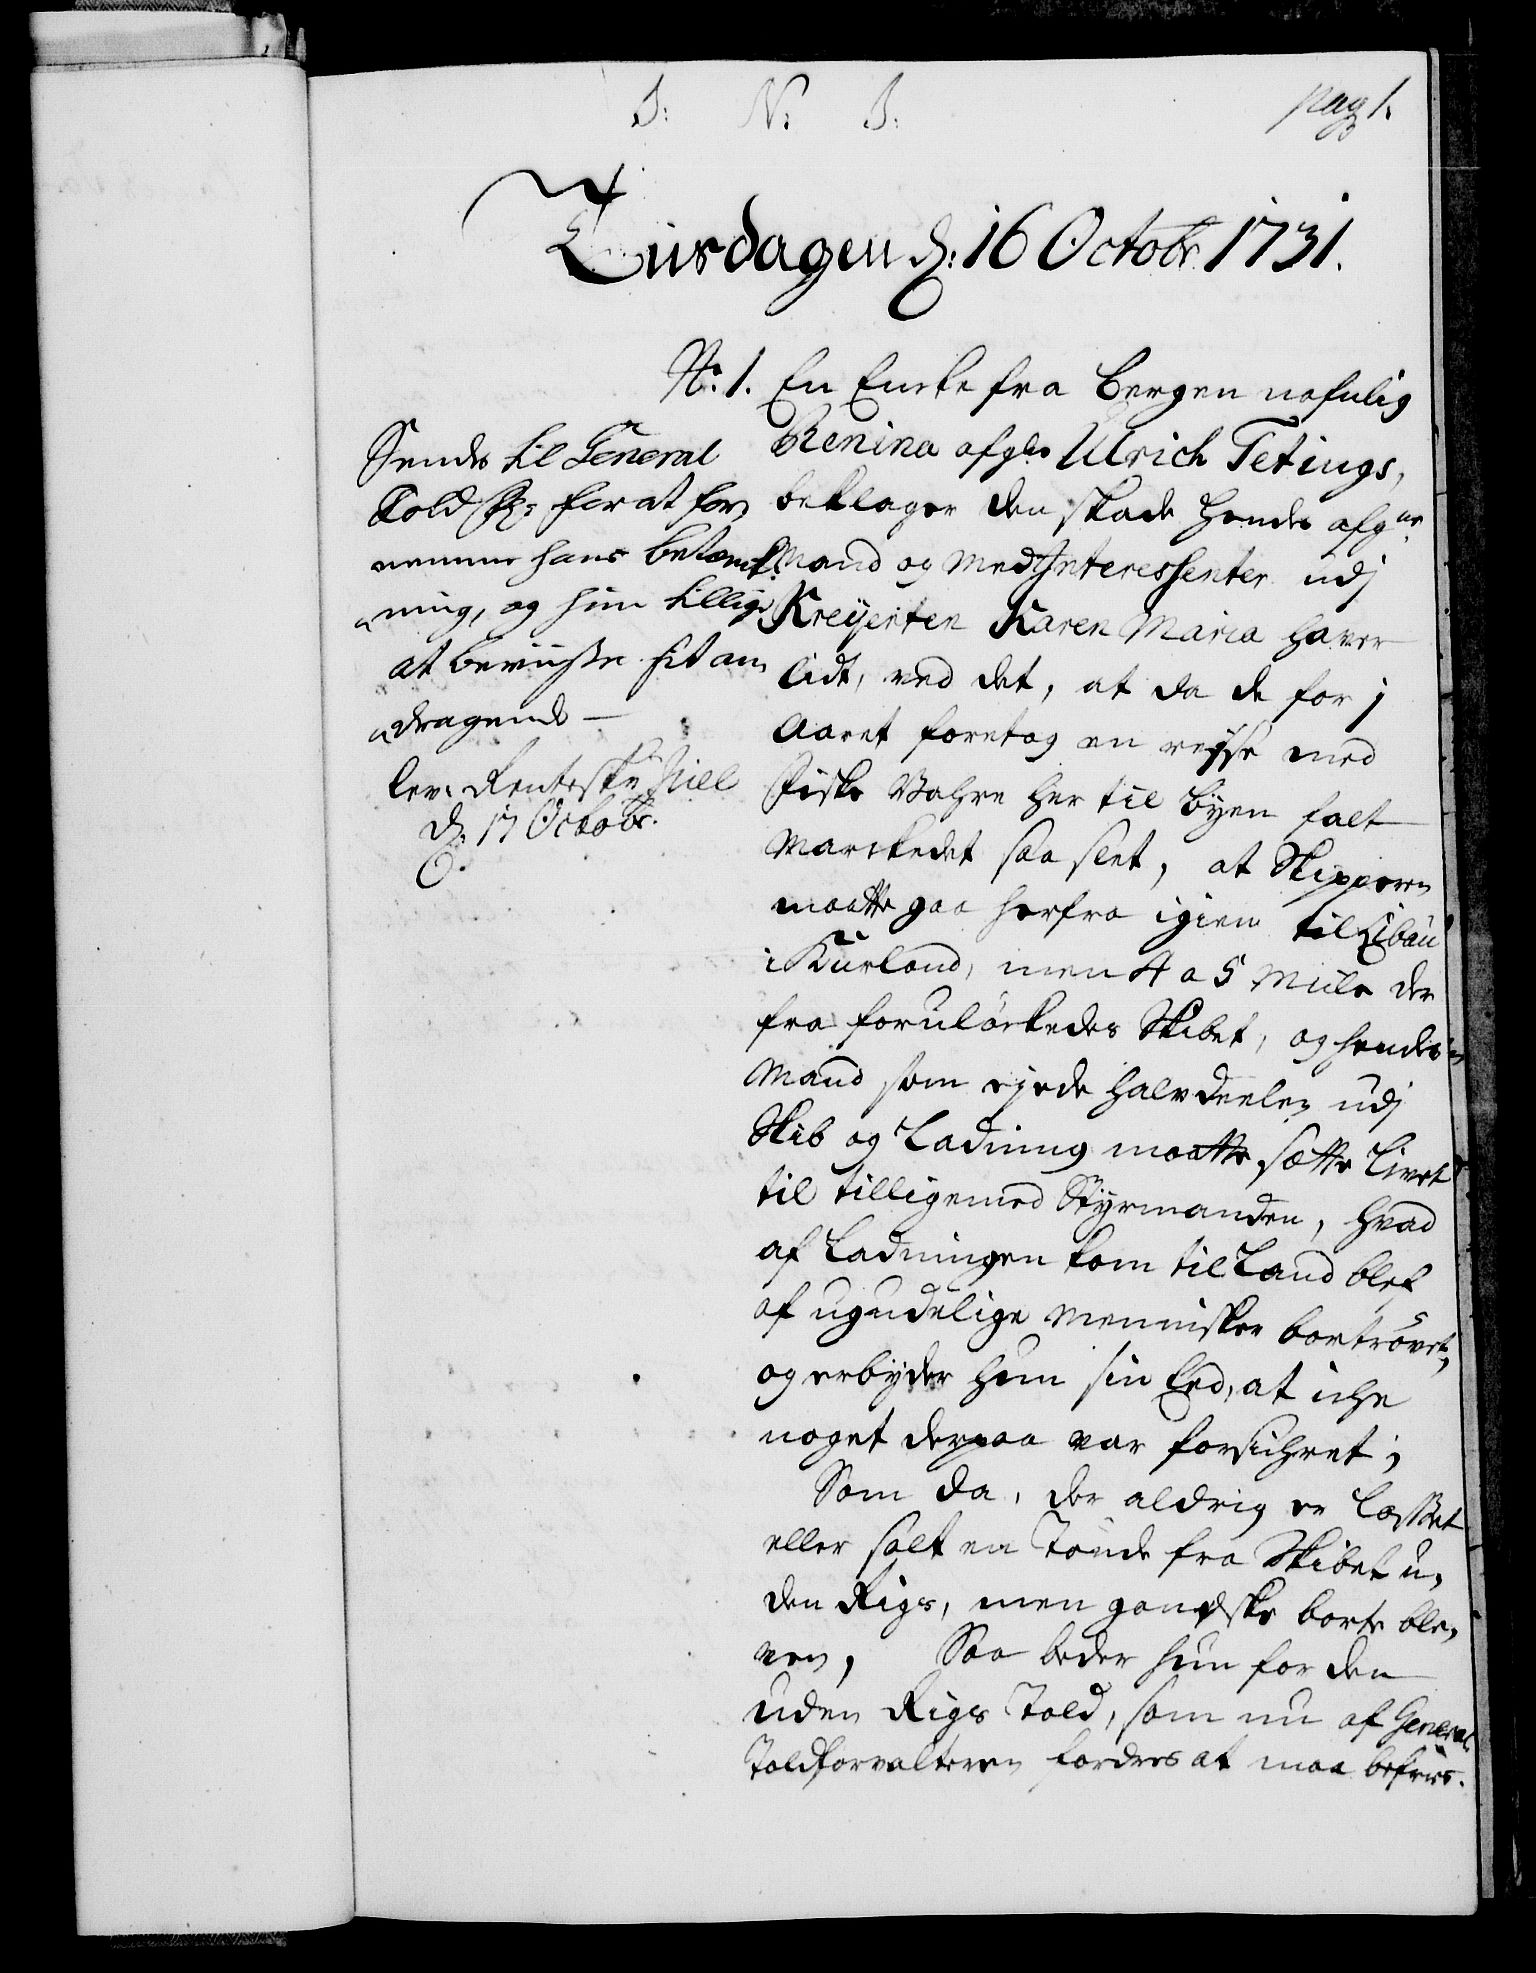 J: N: J:
pag 1.
Tiirsdagen d: 16 Octobr 1731.
No: 1. En Encke fra Bergen nafnlig
Renina afgl: Ulrich Tetings,
beklager den skade hendes afgne
Mand og Med Interessenter udj
Kreyerten Karen Maria haver
lidt, ved det, at da de for j
Aaret foretog en reyse med
Fiske Vahre her til byen falt
Marckedet saa slet, at Skipperen
maatte gaa herfra igien til Libau
i Kurland, men 4 a 5 Miile der
fra forulöckedes Skibet, og hendes
Mand som ejede halvdeelen udj
Skib og Ladning maatte sætte Livet
til tilligemed Styrmanden, hvad
af Ladningen kom til Land blef
af ugudelige Mennisker bortrövet,
og erbyder hun sin Eed, at iche
noget derpaa var forsichret;
Som da, der aldrig er losset
eller salt en Tönde fra Skibet u,
den Rigs, men gandske borte ble,
ven, Saa beder hun for den
uden Rigs Told, som nu af General
Toldforvalteren fordres at maa befries.
Sendes til General
Told for at for,
nemme hans betænk,
ning, og hun tillige
at beviisse sit an,
dragende
lev. Renteskr
d. 17 Octobr.